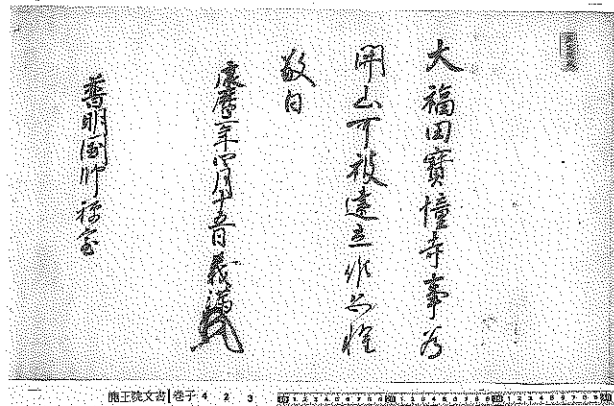 大福田寶幢寺事為
開山可被建立候也惶
敬白
康曆二年四月十五日義滿
普明國師禪室
鹿王院文書 巻子 4 2 3